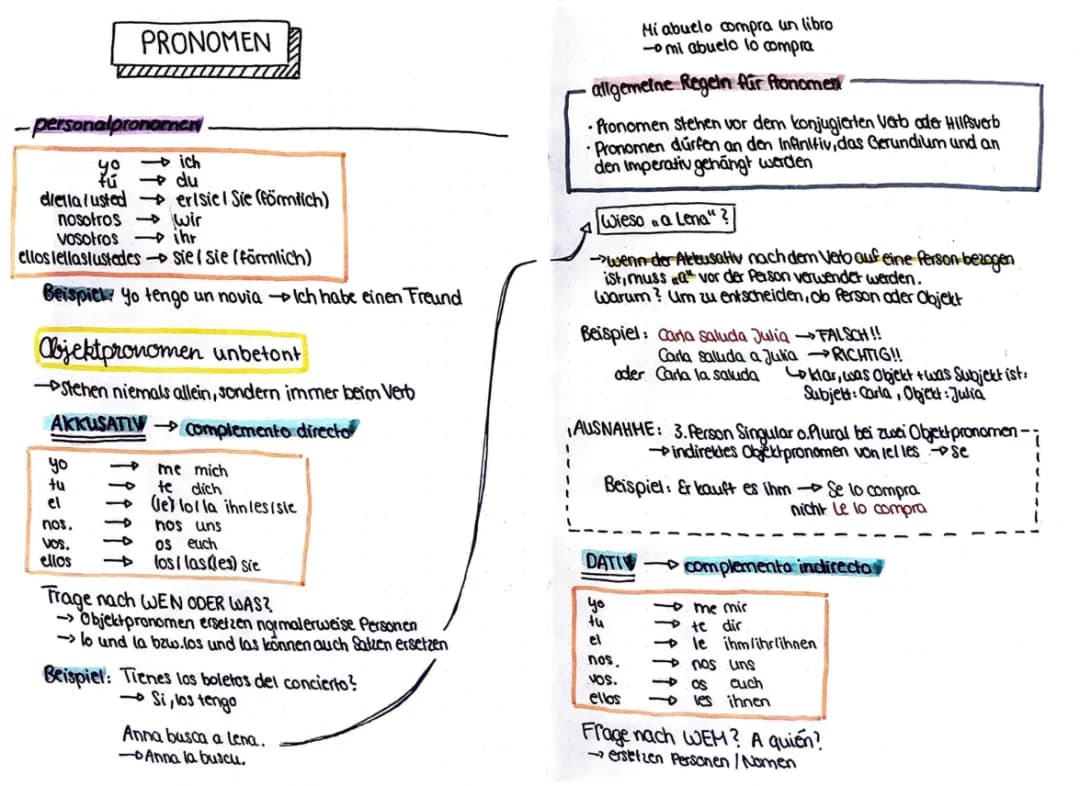 PRONOMEN
personalpronomen
yo → ich
tú → du
él/ella/usted → er/sie/Sie (förmlich)
nosotros → wir
vosotros → ihr
ellos/ellas/ustedes → sie/Sie (förmlich)
Beispiel: Yo tengo un novia → Ich habe einen Freund
Objektpronomen unbetont
→ stehen niemals allein, sondern immer beim Verb
AKKUSATIV → complemento directo
yo → me mich
tu → te dich
el → (le) lo/la ihn/es/sie
nos. → nos uns
vos. → os euch
ellos → los/las(les) sie
Frage nach WEN ODER WAS?
→ Objektpronomen ersetzen normalerweise Personen
→ lo und la bzw. los und las können auch Sätzen ersetzen
Beispiel: Tienes los boletos del concierto?
→ Si, los tengo
Anna busca a Lena.
→ Anna la busca.
Mi abuelo compra un libro
→ mi abuelo lo compra
allgemeine Regeln für Pronomen
· Pronomen stehen vor dem konjugierten Verb oder Hilfsverb
· Pronomen dürfen an den Infinitiv, das Gerundium und an
den Imperativ gehängt werden
Wieso „a Lena"?
→ wenn der Akkusativ nach dem Verb auf eine Person bezogen
ist, muss „a" vor der Person verwendet werden.
Warum? Um zu entscheiden, ob Person oder Objekt
Beispiel: Carla saluda Julia → FALSCH!!
Carla saluda a Julia → RICHTIG!!
oder Carla la saluda ↳ klar, was Objekt + was Subjekt ist:
Subjekt: Carla, Objekt: Julia
AUSNAHME: 3. Person Singular o. Plural bei zwei Objektpronomen
→ indirektes Objektpronomen von le/les → se
Beispiel: Er kauft es ihm → Se lo compra
nicht Le lo compra
DATIV → complemento indirecto
yo → me mir
tu → te dir
el → le ihm/ihr/ihnen
nos. → nos uns
vos. → os euch
ellos → les ihnen
Frage nach WEM? A quién?
→ ersetzen Personen / Nomen